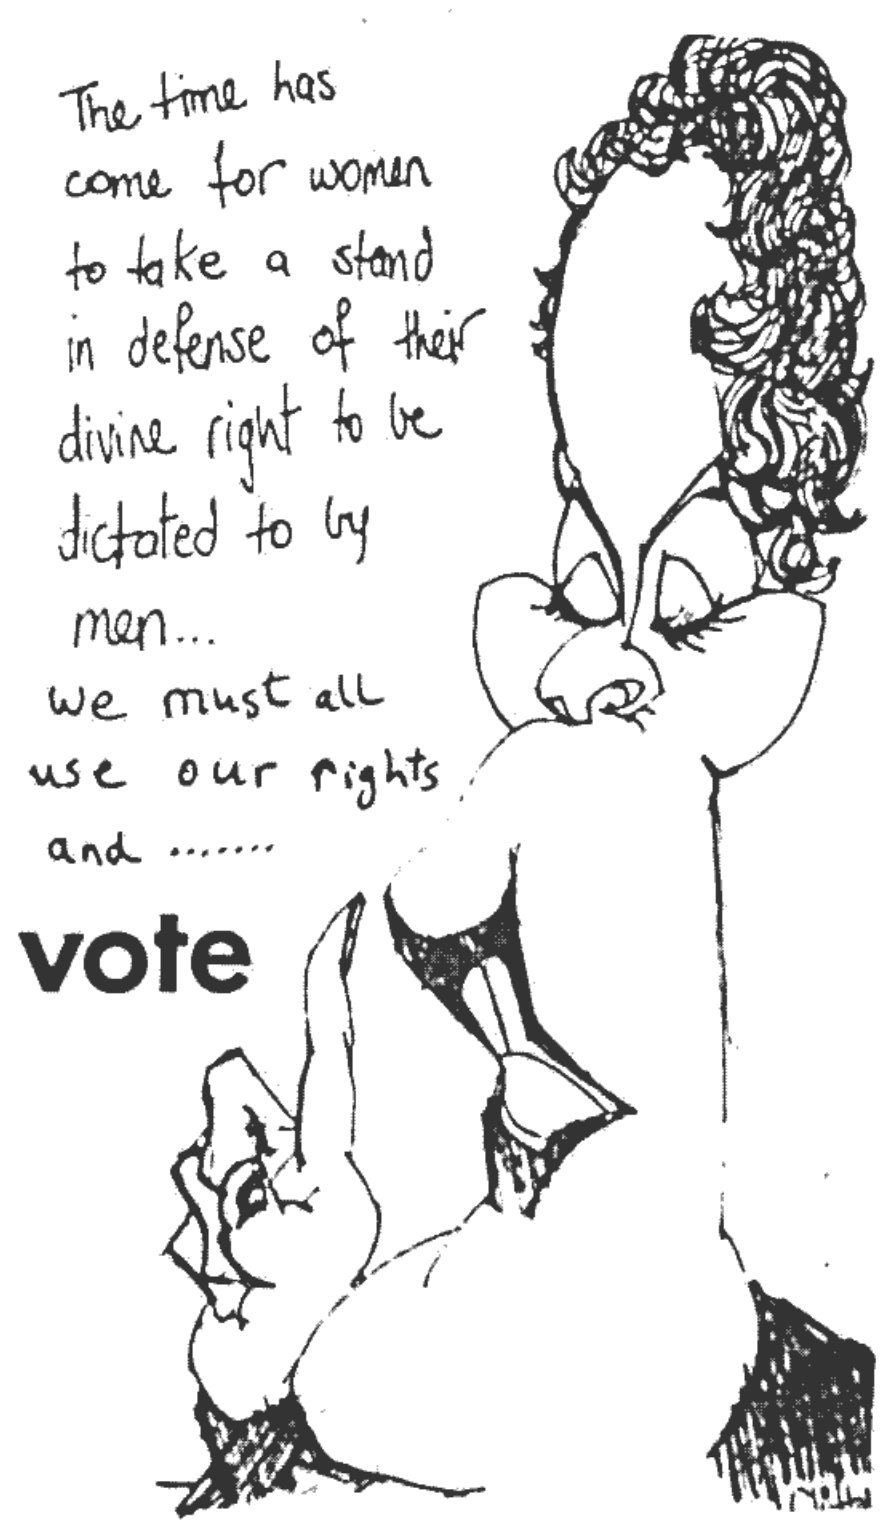 The time has
come for women
to take a stand
in defense of their
divine right to be
dictated to by
men...
we must all
use our rights
and .......
vote